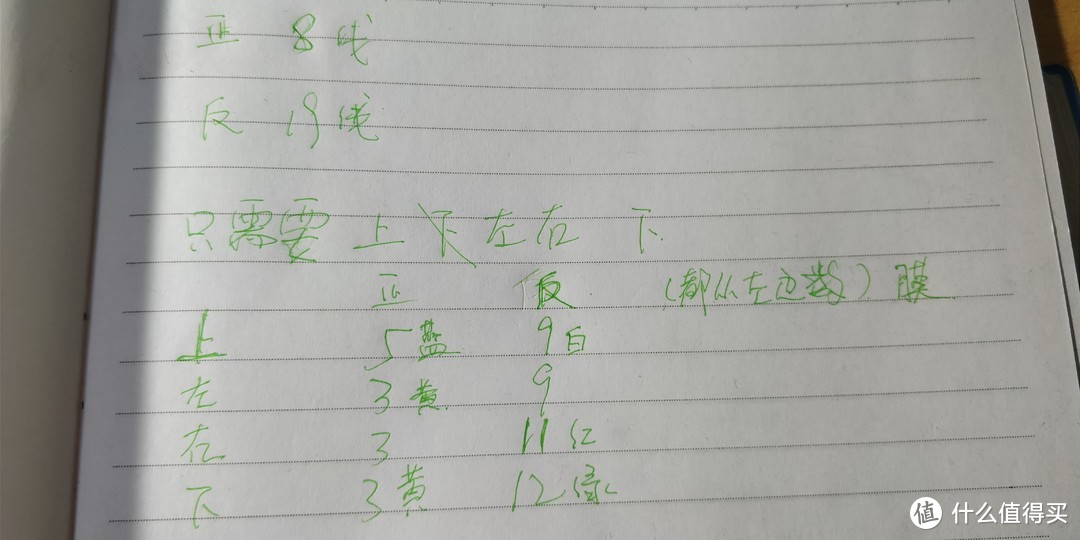 正 8线
反 19线
只需要 上 下 左 右 下
正 反 (都从左边数) 膜
上 5蓝 9白
左 3黄 9
右 3 11红
下 3黄 12绿
值 什么值得买